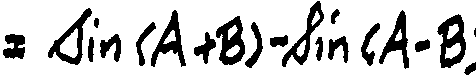 = Sin(A+B)-Sin(A-B)